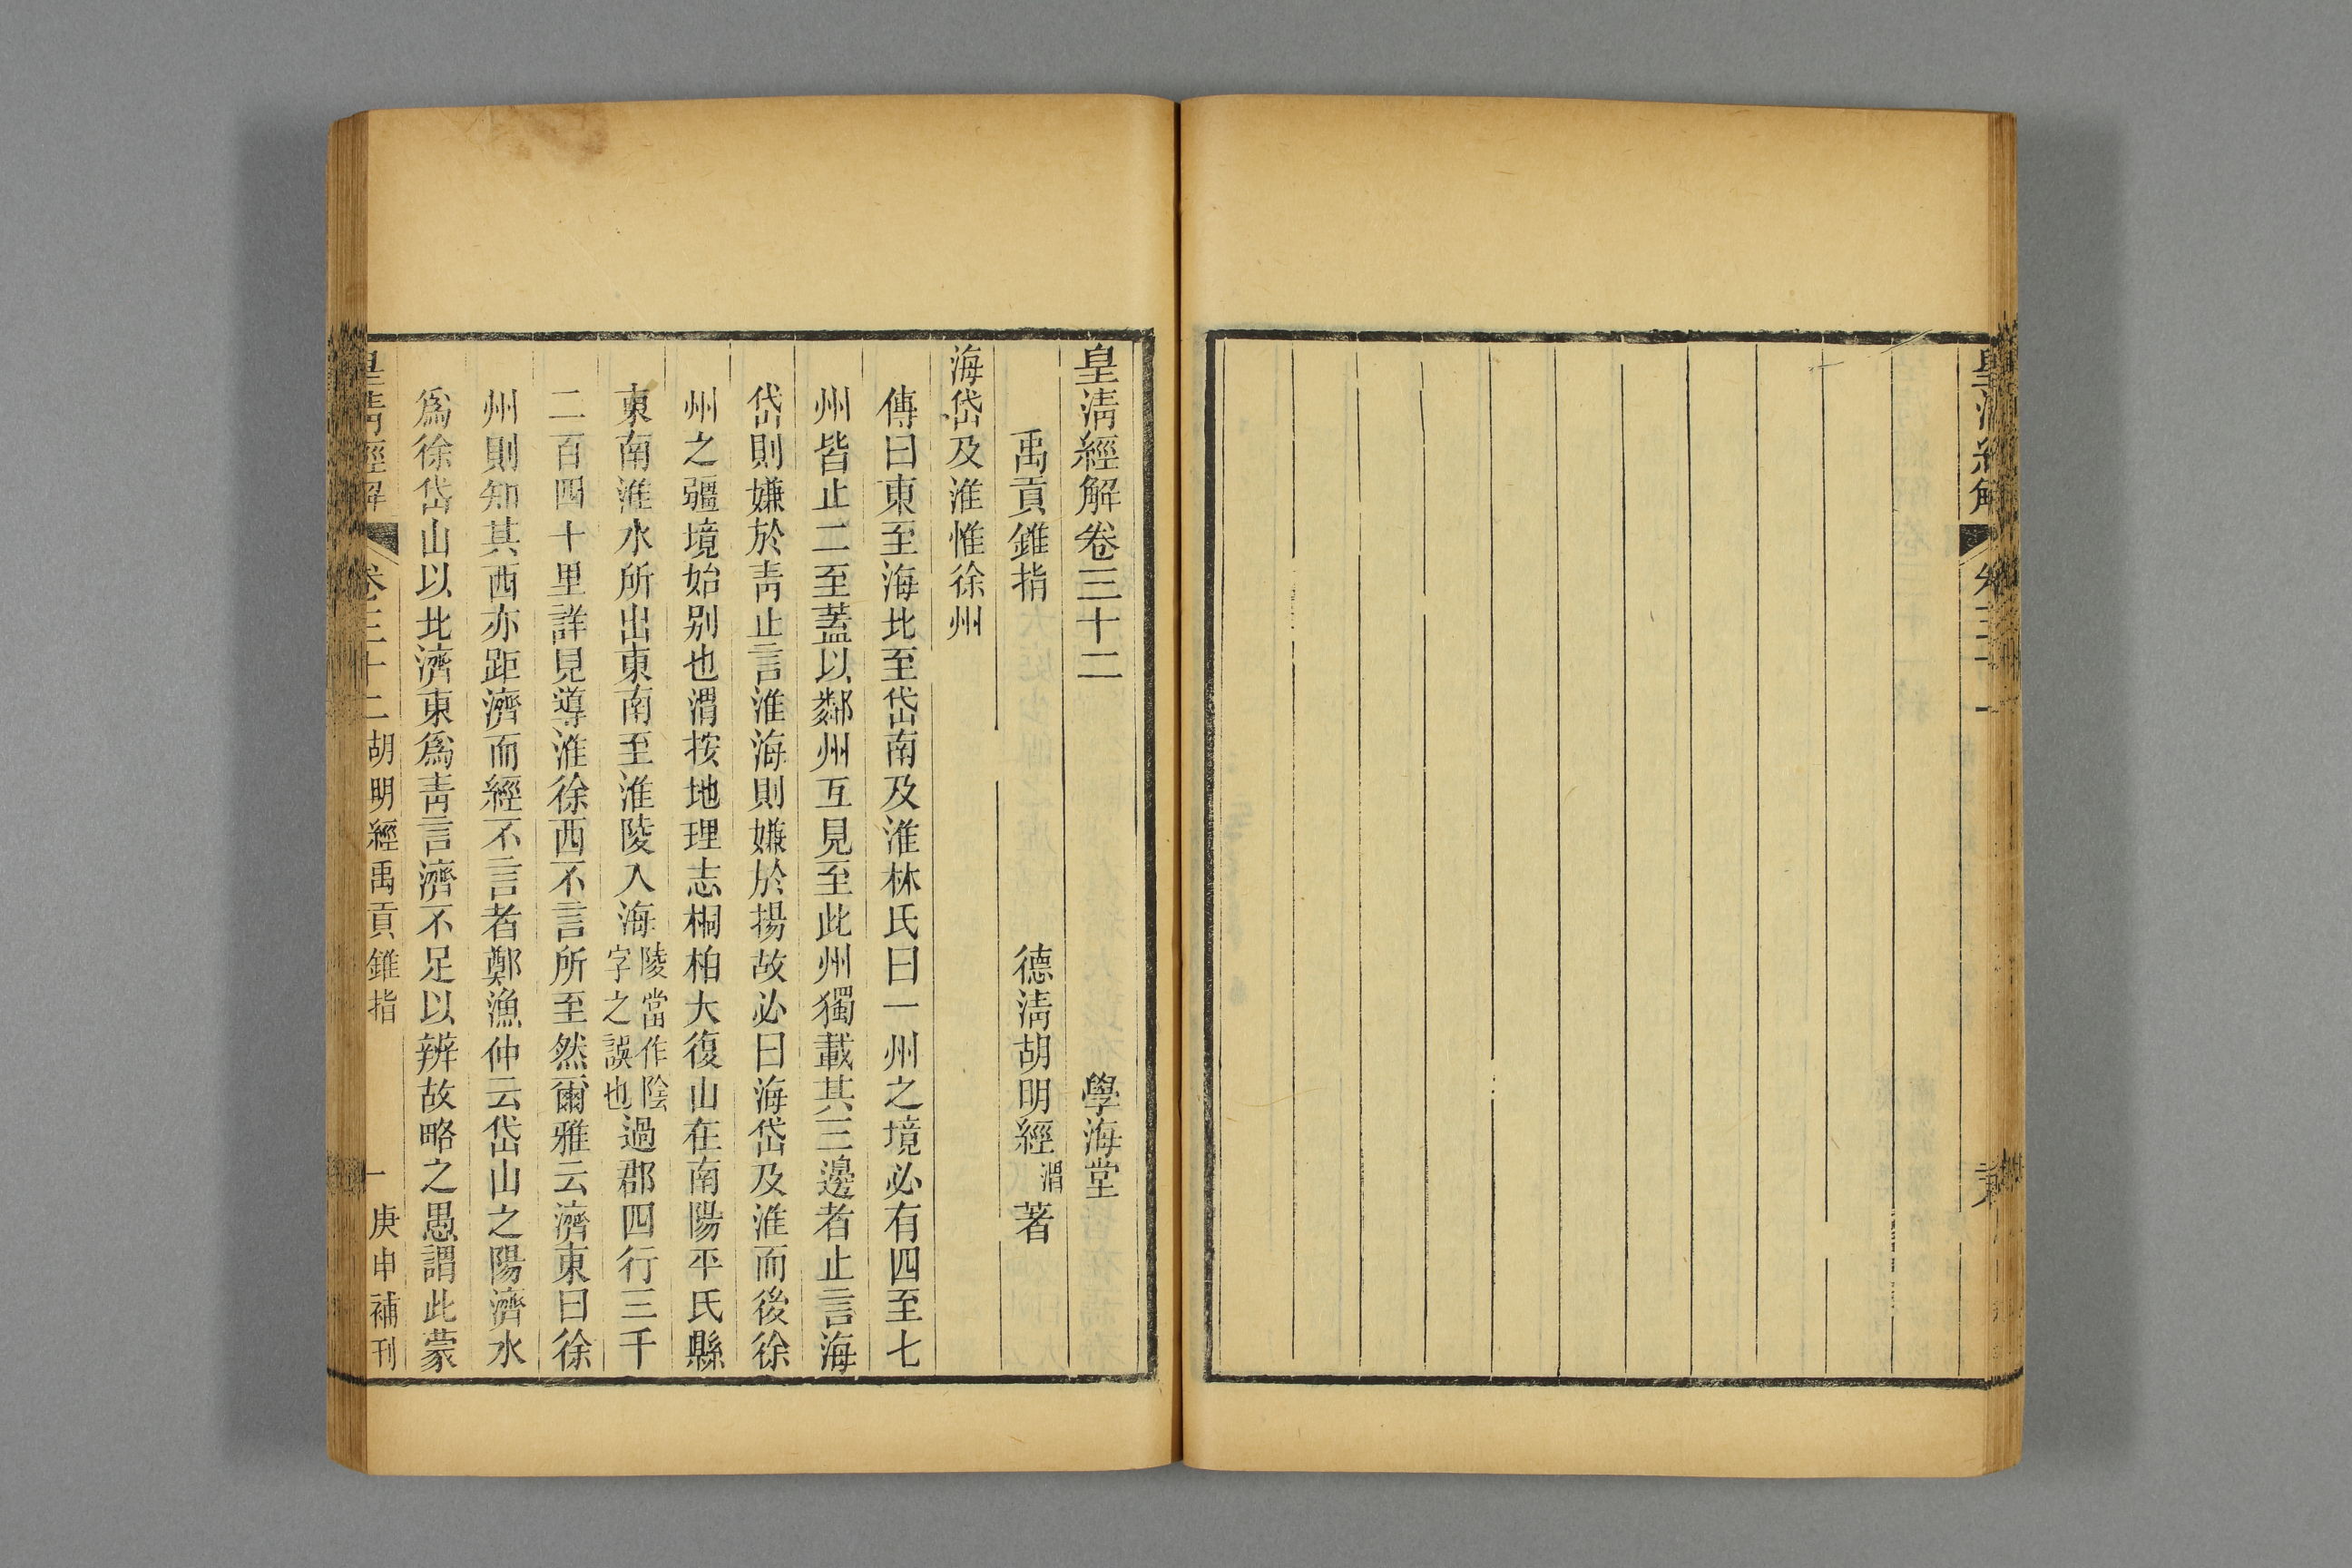 皇清經解
皇清經解卷三十二 學海堂
禹貢錐指 德清胡明經渭著
海岱及淮惟徐州
傳曰東至海北至岱南及淮林氏曰一州之境必有四至七
州皆止二至蓋以鄰州互見至此州獨載其三邊者止言海
岱則嫌於靑止言淮海則嫌於揚故必曰海岱及淮而後徐
州之疆境始別也渭按地理志桐柏大復山在南陽平氏縣
東南淮水所出東南至淮陵入海陵當作陰字之誤也過郡四行三千
二百四十里詳見導淮徐西不言所至然爾雅云濟東曰徐
州則知其西亦距濟而經不言者鄭漁仲云岱山之陽濟水
爲徐岱山以北濟東爲靑言濟不足以辨故略之愚謂此蒙
皇清經解 卷三十二 胡明經禹貢錐指 一 庚申補刊